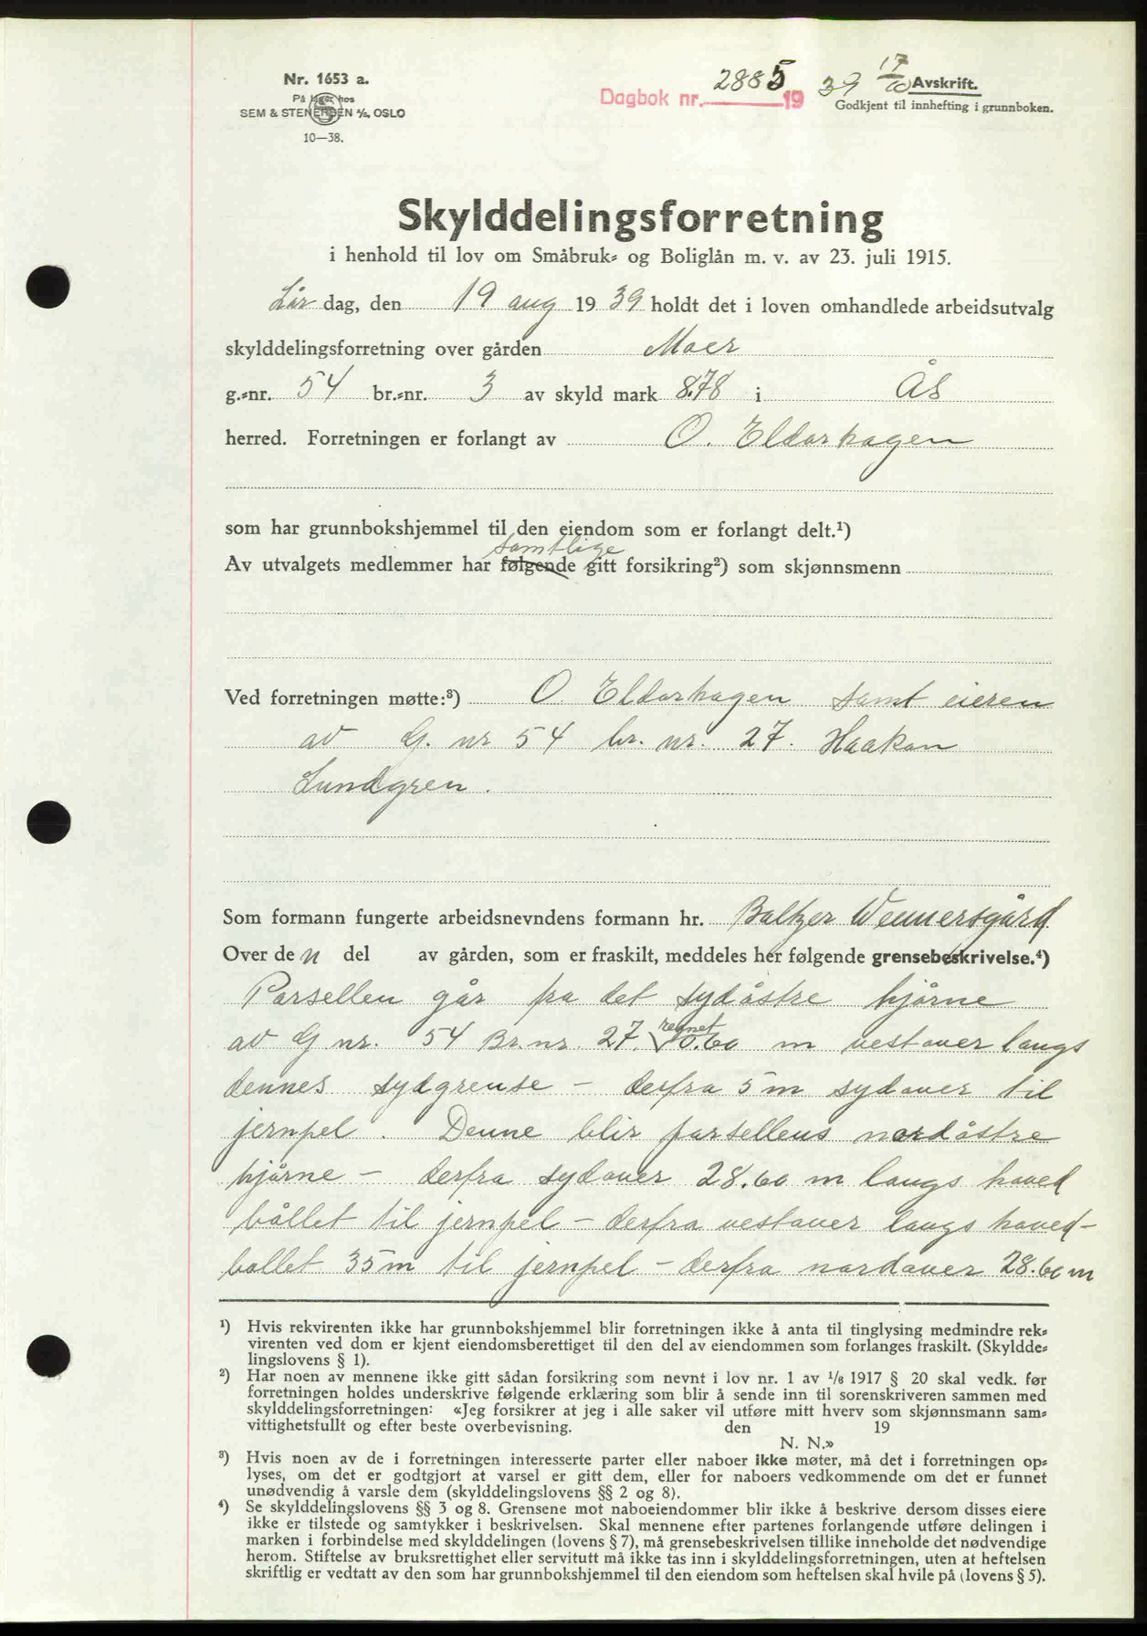 Nr. 1653 a.
På lager hos
SEM & STENERSEN A/S, OSLO
10—38.
Dagbok nr. 2885 19 39 17/10
Avskrift.
Godkjent til innhefting i grunnboken.
Skylddelingsforretning
i henhold til lov om Småbruk- og Boliglån m. v. av 23. juli 1915.
Lør dag, den 19 aug 1939 holdt det i loven omhandlede arbeidsutvalg
skylddelingsforretning over gården Moer
g.-nr. 54 br.-nr. 3 av skyld mark 8.78 i ÅS
herred. Forretningen er forlangt av O. Eldorhagen
som har grunnbokshjemmel til den eiendom som er forlangt delt.¹)
samtlige
Av utvalgets medlemmer har følgende gitt forsikring²) som skjønnsmenn
Ved forretningen møtte:³) O. Eldorhagen samt eieren
av G. nr 54 br. nr. 27. Haakon
Lundgren.
Som formann fungerte arbeidsnevndens formann hr. Baltzer Wennersgård
Over den del av gården, som er fraskilt, meddeles her følgende grensebeskrivelse.⁴)
Parsellen går fra det sydåstre hjørne
av G nr. 54 Br. nr. 27. regnet 10.60 m vestover langs
dennes sydgrense - derfra 5 m sydover til
jernpel. Denne blir parsellens nordåstre
hjørne - derfra sydover 28.60 m langs hoved
bøllet til jernpel - derfra vestover langs hoved-
bøllet 35 m til jernpel - derfra nordover 28.60 m
¹) Hvis rekvirenten ikke har grunnbokshjemmel blir forretningen ikke å anta til tinglysing medmindre rek-
virenten ved dom er kjent eiendomsberettiget til den del av eiendommen som forlanges fraskilt. (Skyldde-
lingslovens § 1).
²) Har noen av mennene ikke gitt sådan forsikring som nevnt i lov nr. 1 av 1/6 1917 § 20 skal vedk. før
forretningen holdes underskrive følgende erklæring som blir å sende inn til sorenskriveren sammen med
skylddelingsforretningen: «Jeg forsikrer at jeg i alle saker vil utføre mitt hverv som skjønnsmann sam-
vittighetsfullt og efter beste overbevisning. den 19
N. N.»
³) Hvis noen av de i forretningen interesserte parter eller naboer ikke møter, må det i forretningen op-
lyses, om det er godtgjort at varsel er gitt dem, eller for naboers vedkommende om det er funnet
unødvendig å varsle dem (skylddelingslovens §§ 2 og 8).
⁴) Se skylddelingslovens §§ 3 og 8. Grensene mot naboeiendommer blir ikke å beskrive dersom disses eiere
ikke er tilstede og samtykker i beskrivelsen. Skal mennene efter partenes forlangende utføre delingen i
marken i forbindelse med skylddelingen (lovens § 7), må grensebeskrivelsen tillike inneholde det nødvendige
herom. Stiftelse av bruksrettighet eller servitutt må ikke tas inn i skylddelingsforretningen, uten at heftelsen
skriftlig er vedtatt av den som har grunnbokshjemmel til den eiendom som heftelsen skal hvile på (lovens § 5).